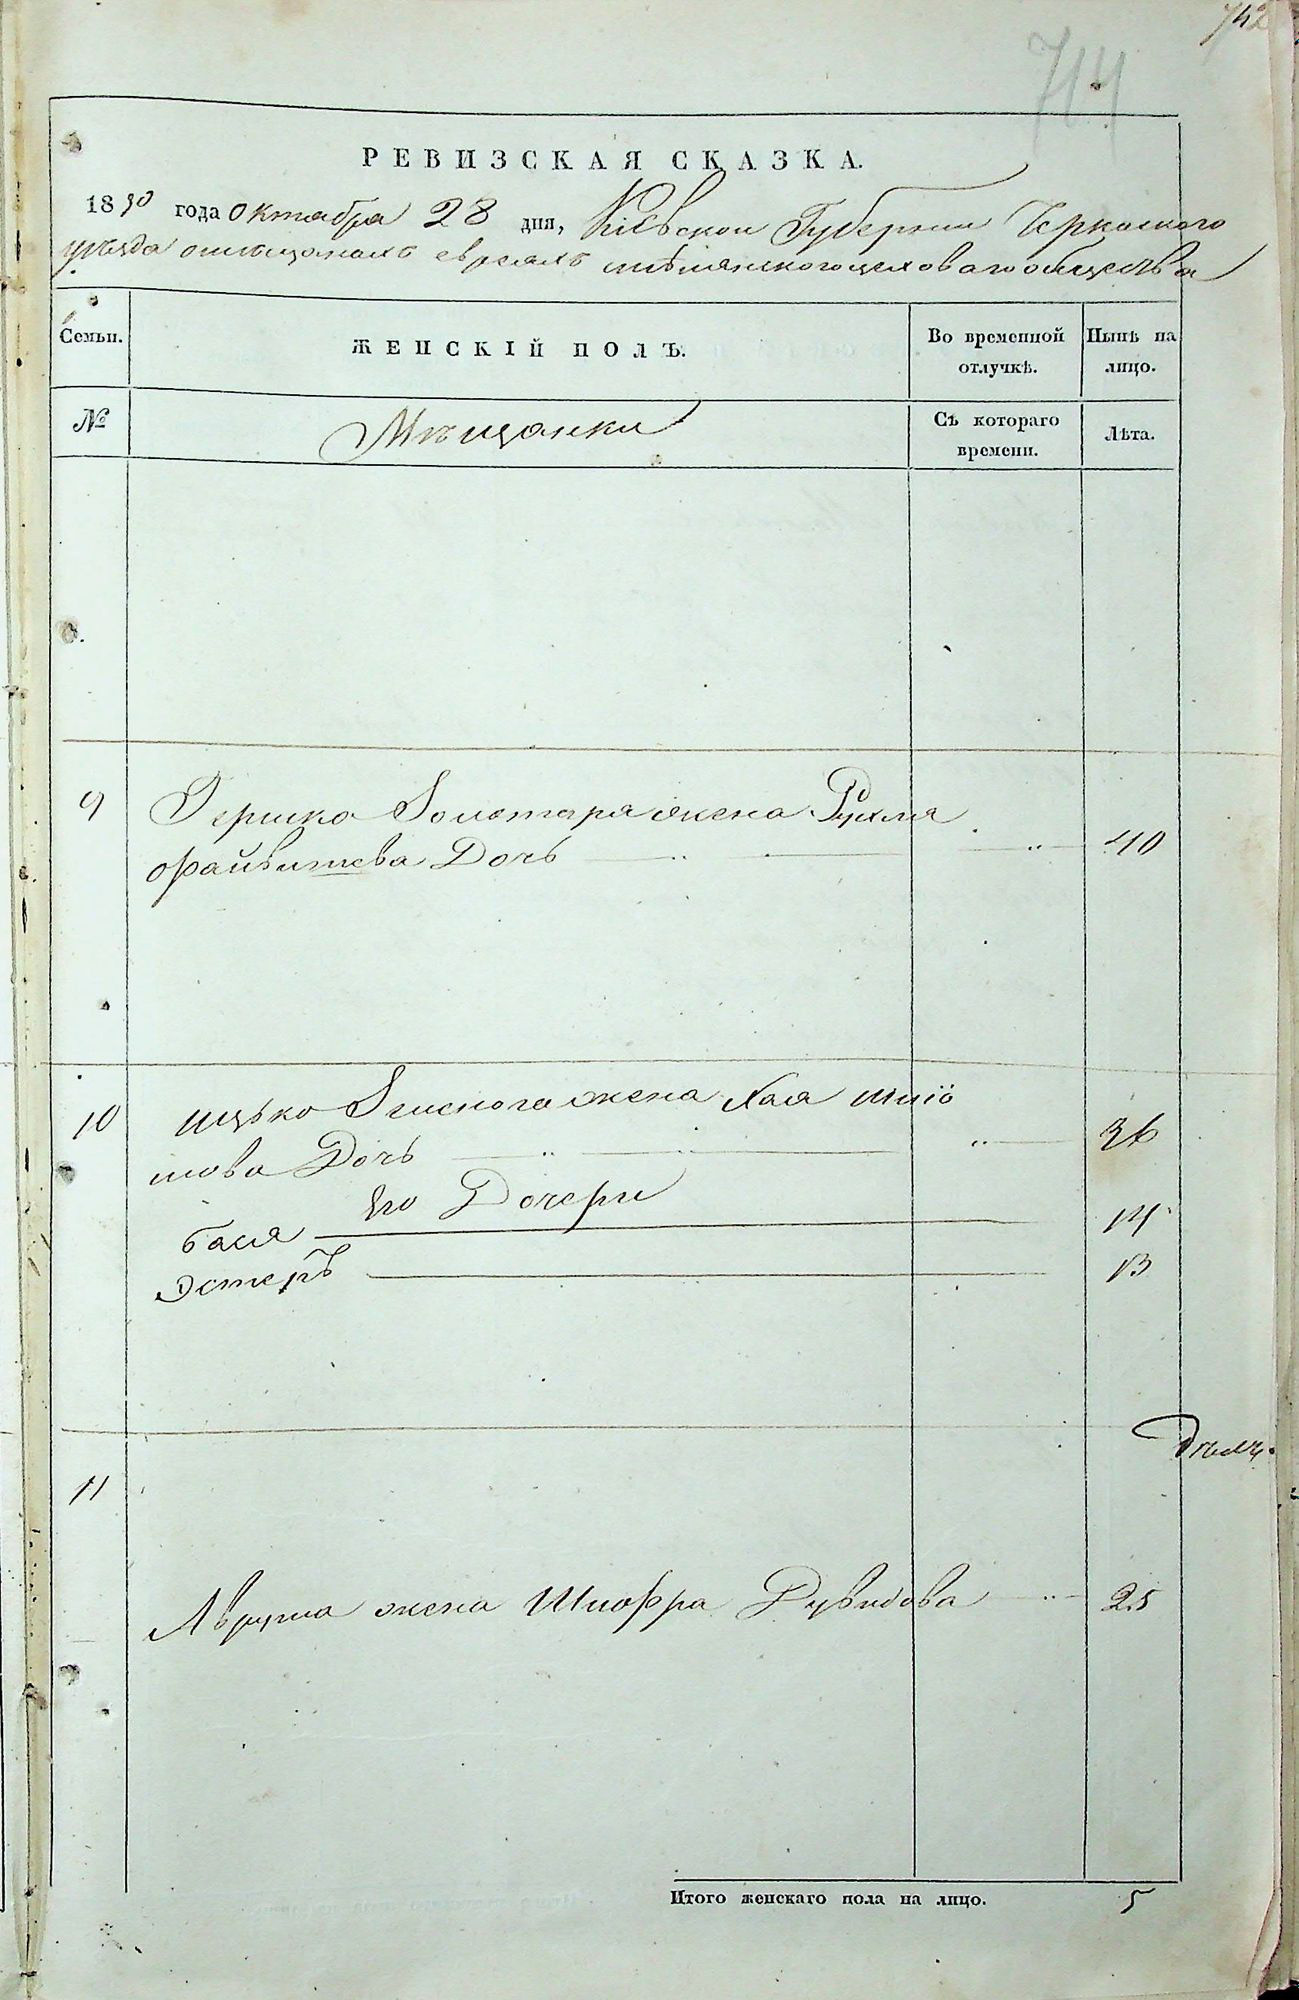 742
744
РЕВИЗСКАЯ СКАЗКА.
1850 года Октября 28 дня, Кіевской Губерніи Черкаского
уѣзда о мѣщанахъ евреяхъ смѣлянского цеховаго общества
Семьи.
ЖЕНСКІЙ ПОЛЪ.
Во временной отлучкѣ.
Нынѣ на лицо.
№
Мѣщанки
Съ котораго времени.
Лѣта.
9 Гершка Золотаря жена Рухля
Файвишева Дочь 40
10 Ицько жена Хая
шова Дочь 36
Его Дочери
Бася 14
Эстеръ 13
11
Аврума жена Шифра Рувинова 25
Итого женскаго пола на лицо. 5